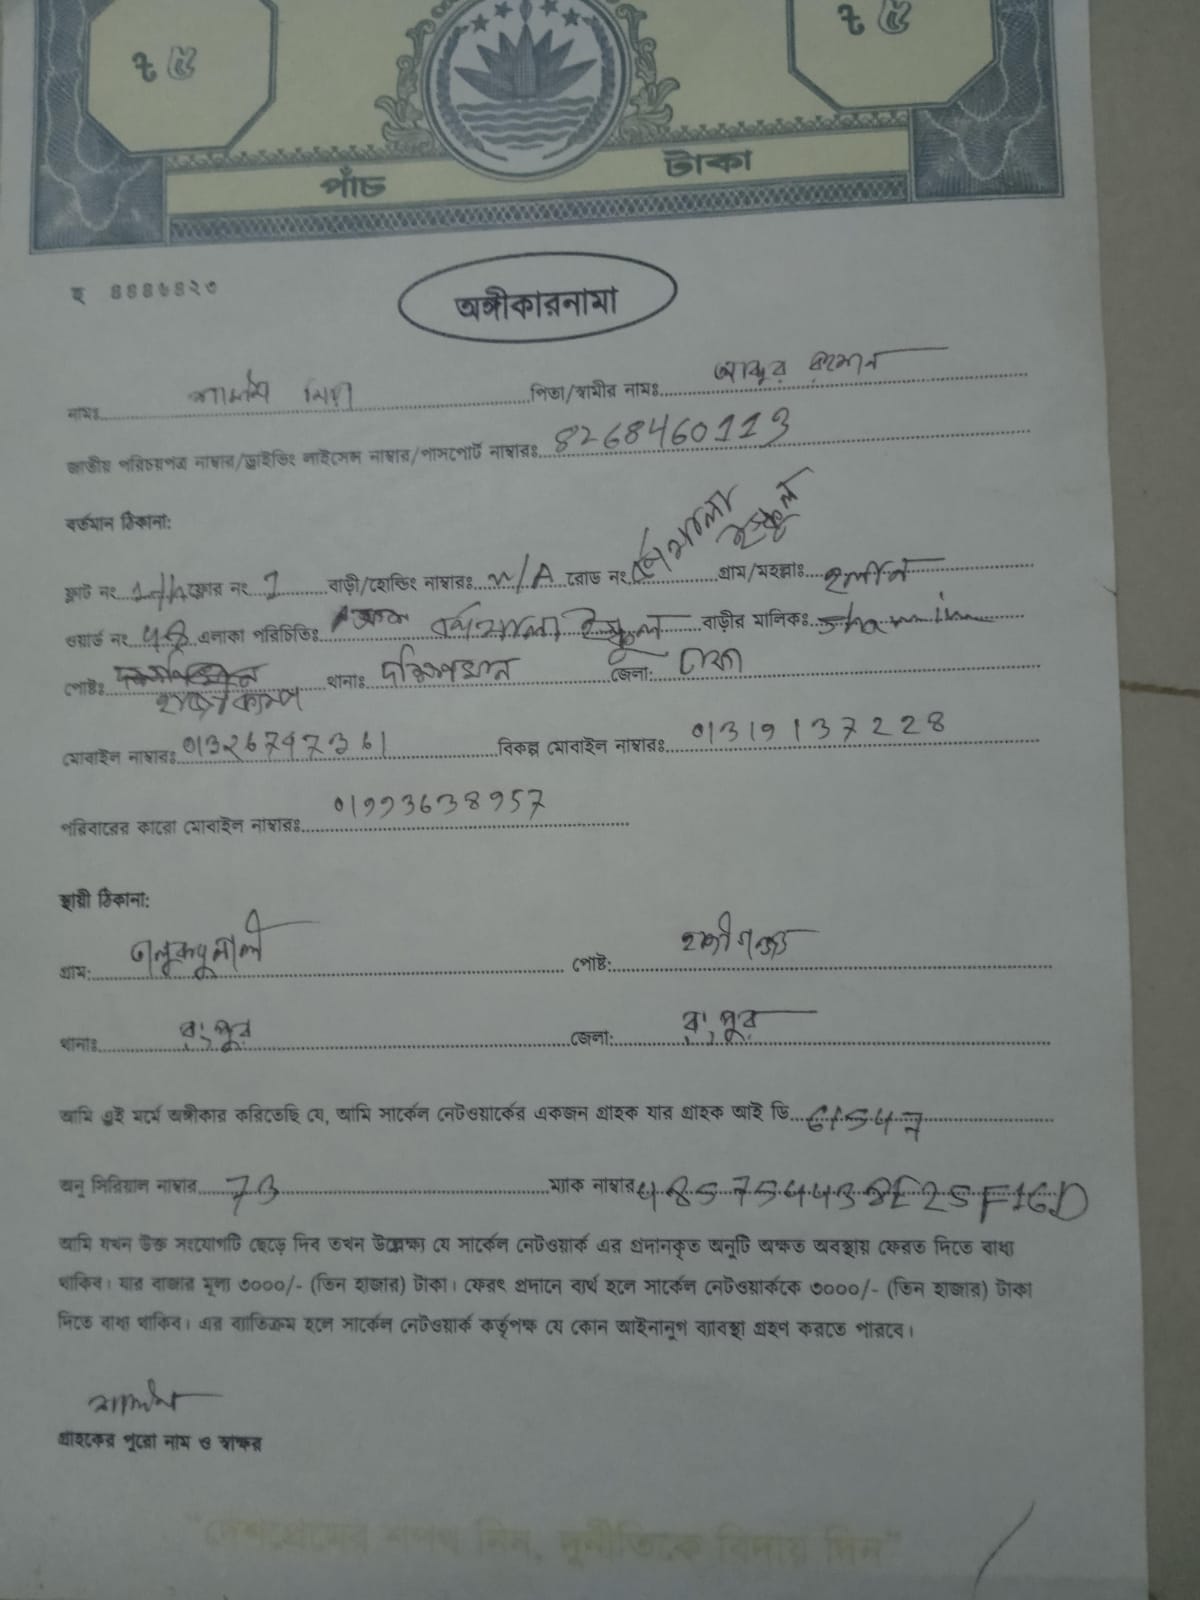 ৳ ৫ ৳ ৫
পাঁচ টাকা
হ ৪৪৪৬৪২৩
অঙ্গীকারনামা
নামঃ মিয়া পিতা/স্বামীর নামঃ আব্দুর রহমান
জাতীয় পরিচয়পত্র নাম্বার/ড্রাইভিং লাইসেন্স নাম্বার/পাসপোর্ট নাম্বারঃ 8268460113
বর্তমান ঠিকানা:
ফ্লাট নং ফ্লোর নং 1 বাড়ী/হোল্ডিং নাম্বারঃ N/A রোড নং বর্ণমালা ইস্কুল গ্রাম/মহল্লাঃ হলান
ওয়ার্ড নং 48 এলাকা পরিচিতিঃ বর্ণমালা ইস্কুল বাড়ীর মালিকঃ shamim
পোষ্টঃ হাজীক্যাম্প থানাঃ দক্ষিণখান জেলা: ঢাকা
মোবাইল নাম্বারঃ 01326747361 বিকল্প মোবাইল নাম্বারঃ 01319137228
পরিবারের কারো মোবাইল নাম্বারঃ 01993638957
স্থায়ী ঠিকানা:
গ্রাম: পোষ্ট:
থানাঃ রংপুর জেলা: রংপুর
আমি এই মর্মে অঙ্গীকার করিতেছি যে, আমি সার্কেল নেটওয়ার্কের একজন গ্রাহক যার গ্রাহক আই ডি
অনু সিরিয়াল নাম্বার 73 ম্যাক নাম্বার 485754438E25F16D
আমি যখন উক্ত সংযোগটি ছেড়ে দিব তখন উল্লেক্ষ্য যে সার্কেল নেটওয়ার্ক এর প্রদানকৃত অনুটি অক্ষত অবস্থায় ফেরত দিতে বাধ্য
থাকিব। যার বাজার মূল্য ৩০০০/- (তিন হাজার) টাকা। ফেরৎ প্রদানে ব্যর্থ হলে সার্কেল নেটওয়ার্ককে ৩০০০/- (তিন হাজার) টাকা
দিতে বাধ্য থাকিব। এর ব্যাতিক্রম হলে সার্কেল নেটওয়ার্ক কর্তৃপক্ষ যে কোন আইনানুগ ব্যাবস্থা গ্রহণ করতে পারবে।
গ্রাহকের পুরো নাম ও স্বাক্ষর
"দেশপ্রেমের শপথ নিন, দুর্নীতিকে বিদায় দিন"